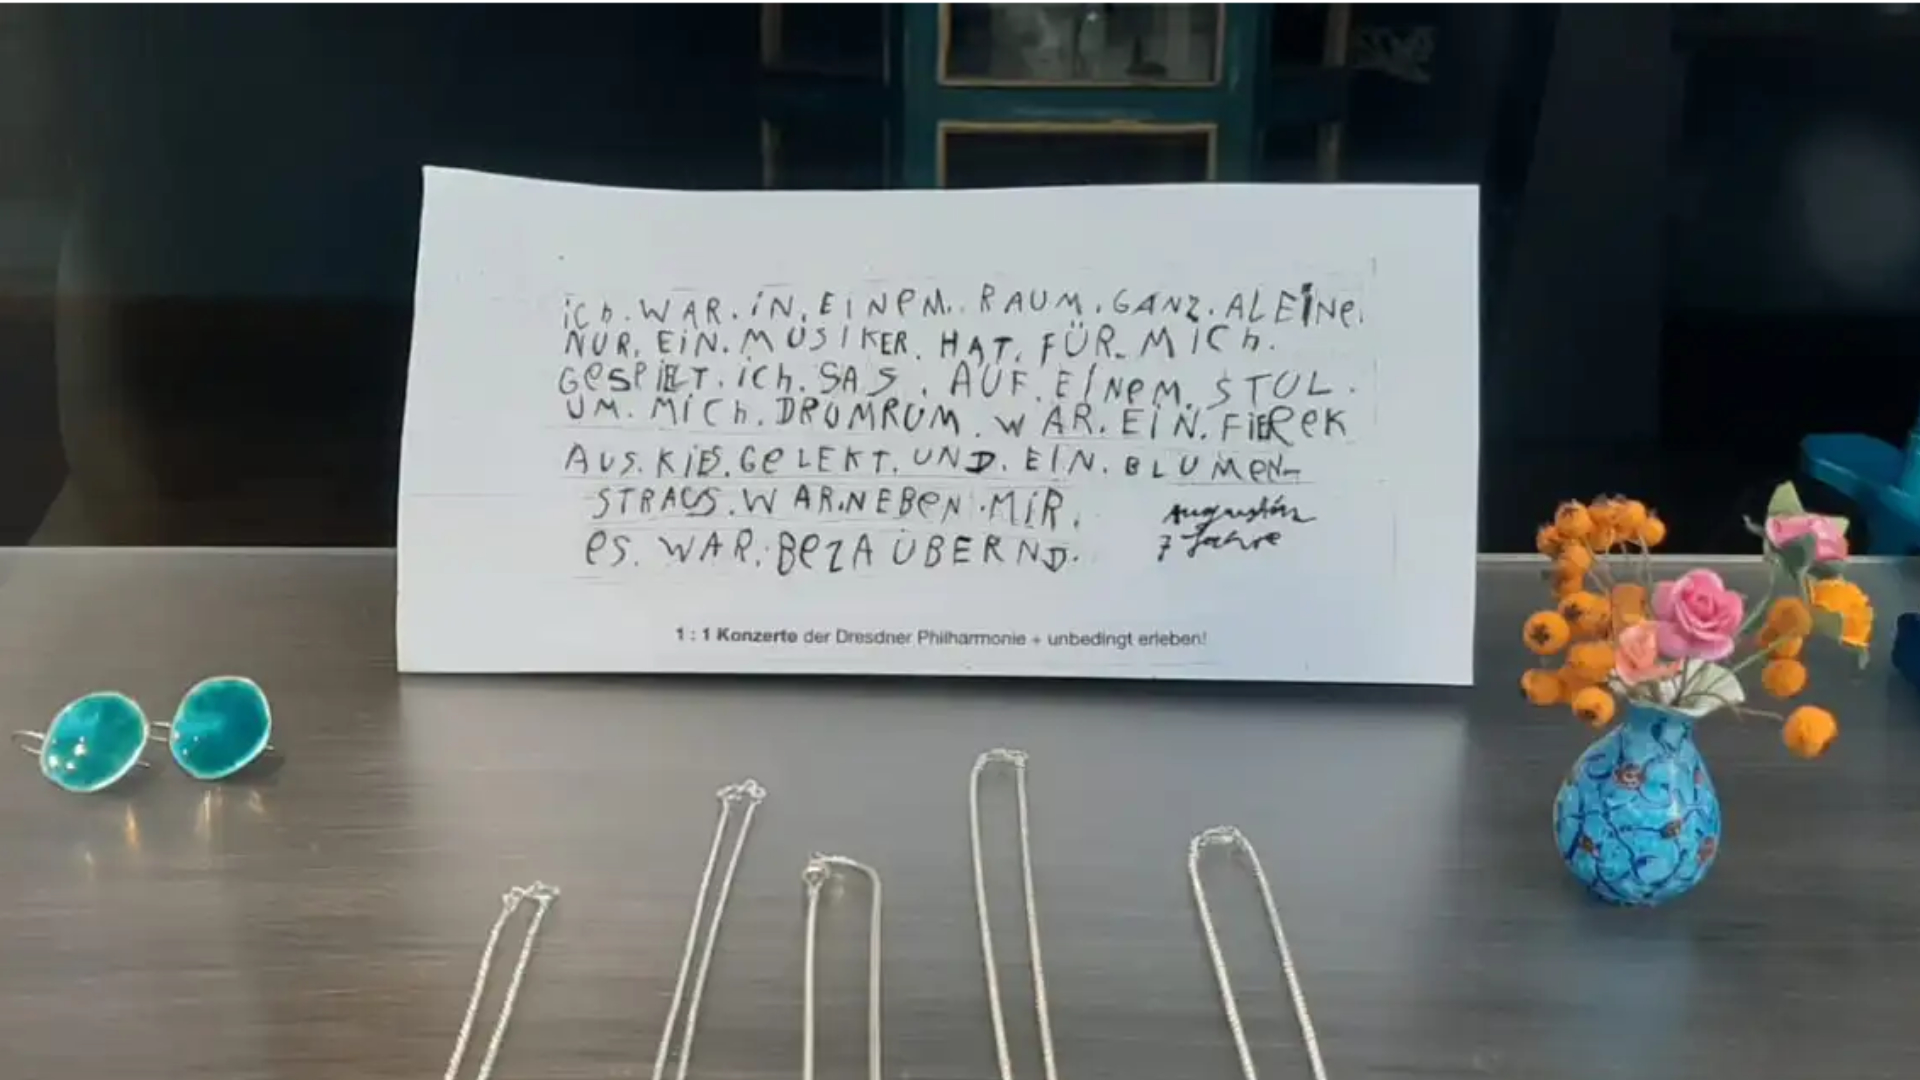 iCh. WAR. iN. EINeM. RAUM. GANZ. ALEiNe.
NUR. EiN. MUSIKER. HAT. FÜR. MiCh.
GeSPiELT. iCh. SAS. AUF. EINeM. STUL.
UM. MiCh. DRUMRUM. WAR. EiN. FiEReK
AUS. KiES. GeLEKT. UND. EIN. BLUMeN-
STRAUS. WAR. NEBeN. MiR.
eS. WAR. BeZAUBERND.
Augustin
7 Jahre
1 : 1 Konzerte der Dresdner Philharmonie + unbedingt erleben!